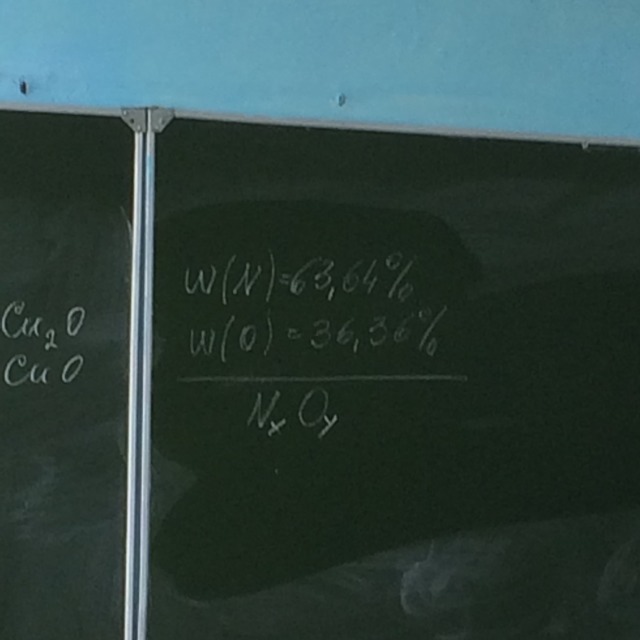 Cu₂O
CuO
W(N)=63,64%
W(O)=36,36%
NₓOᵧ